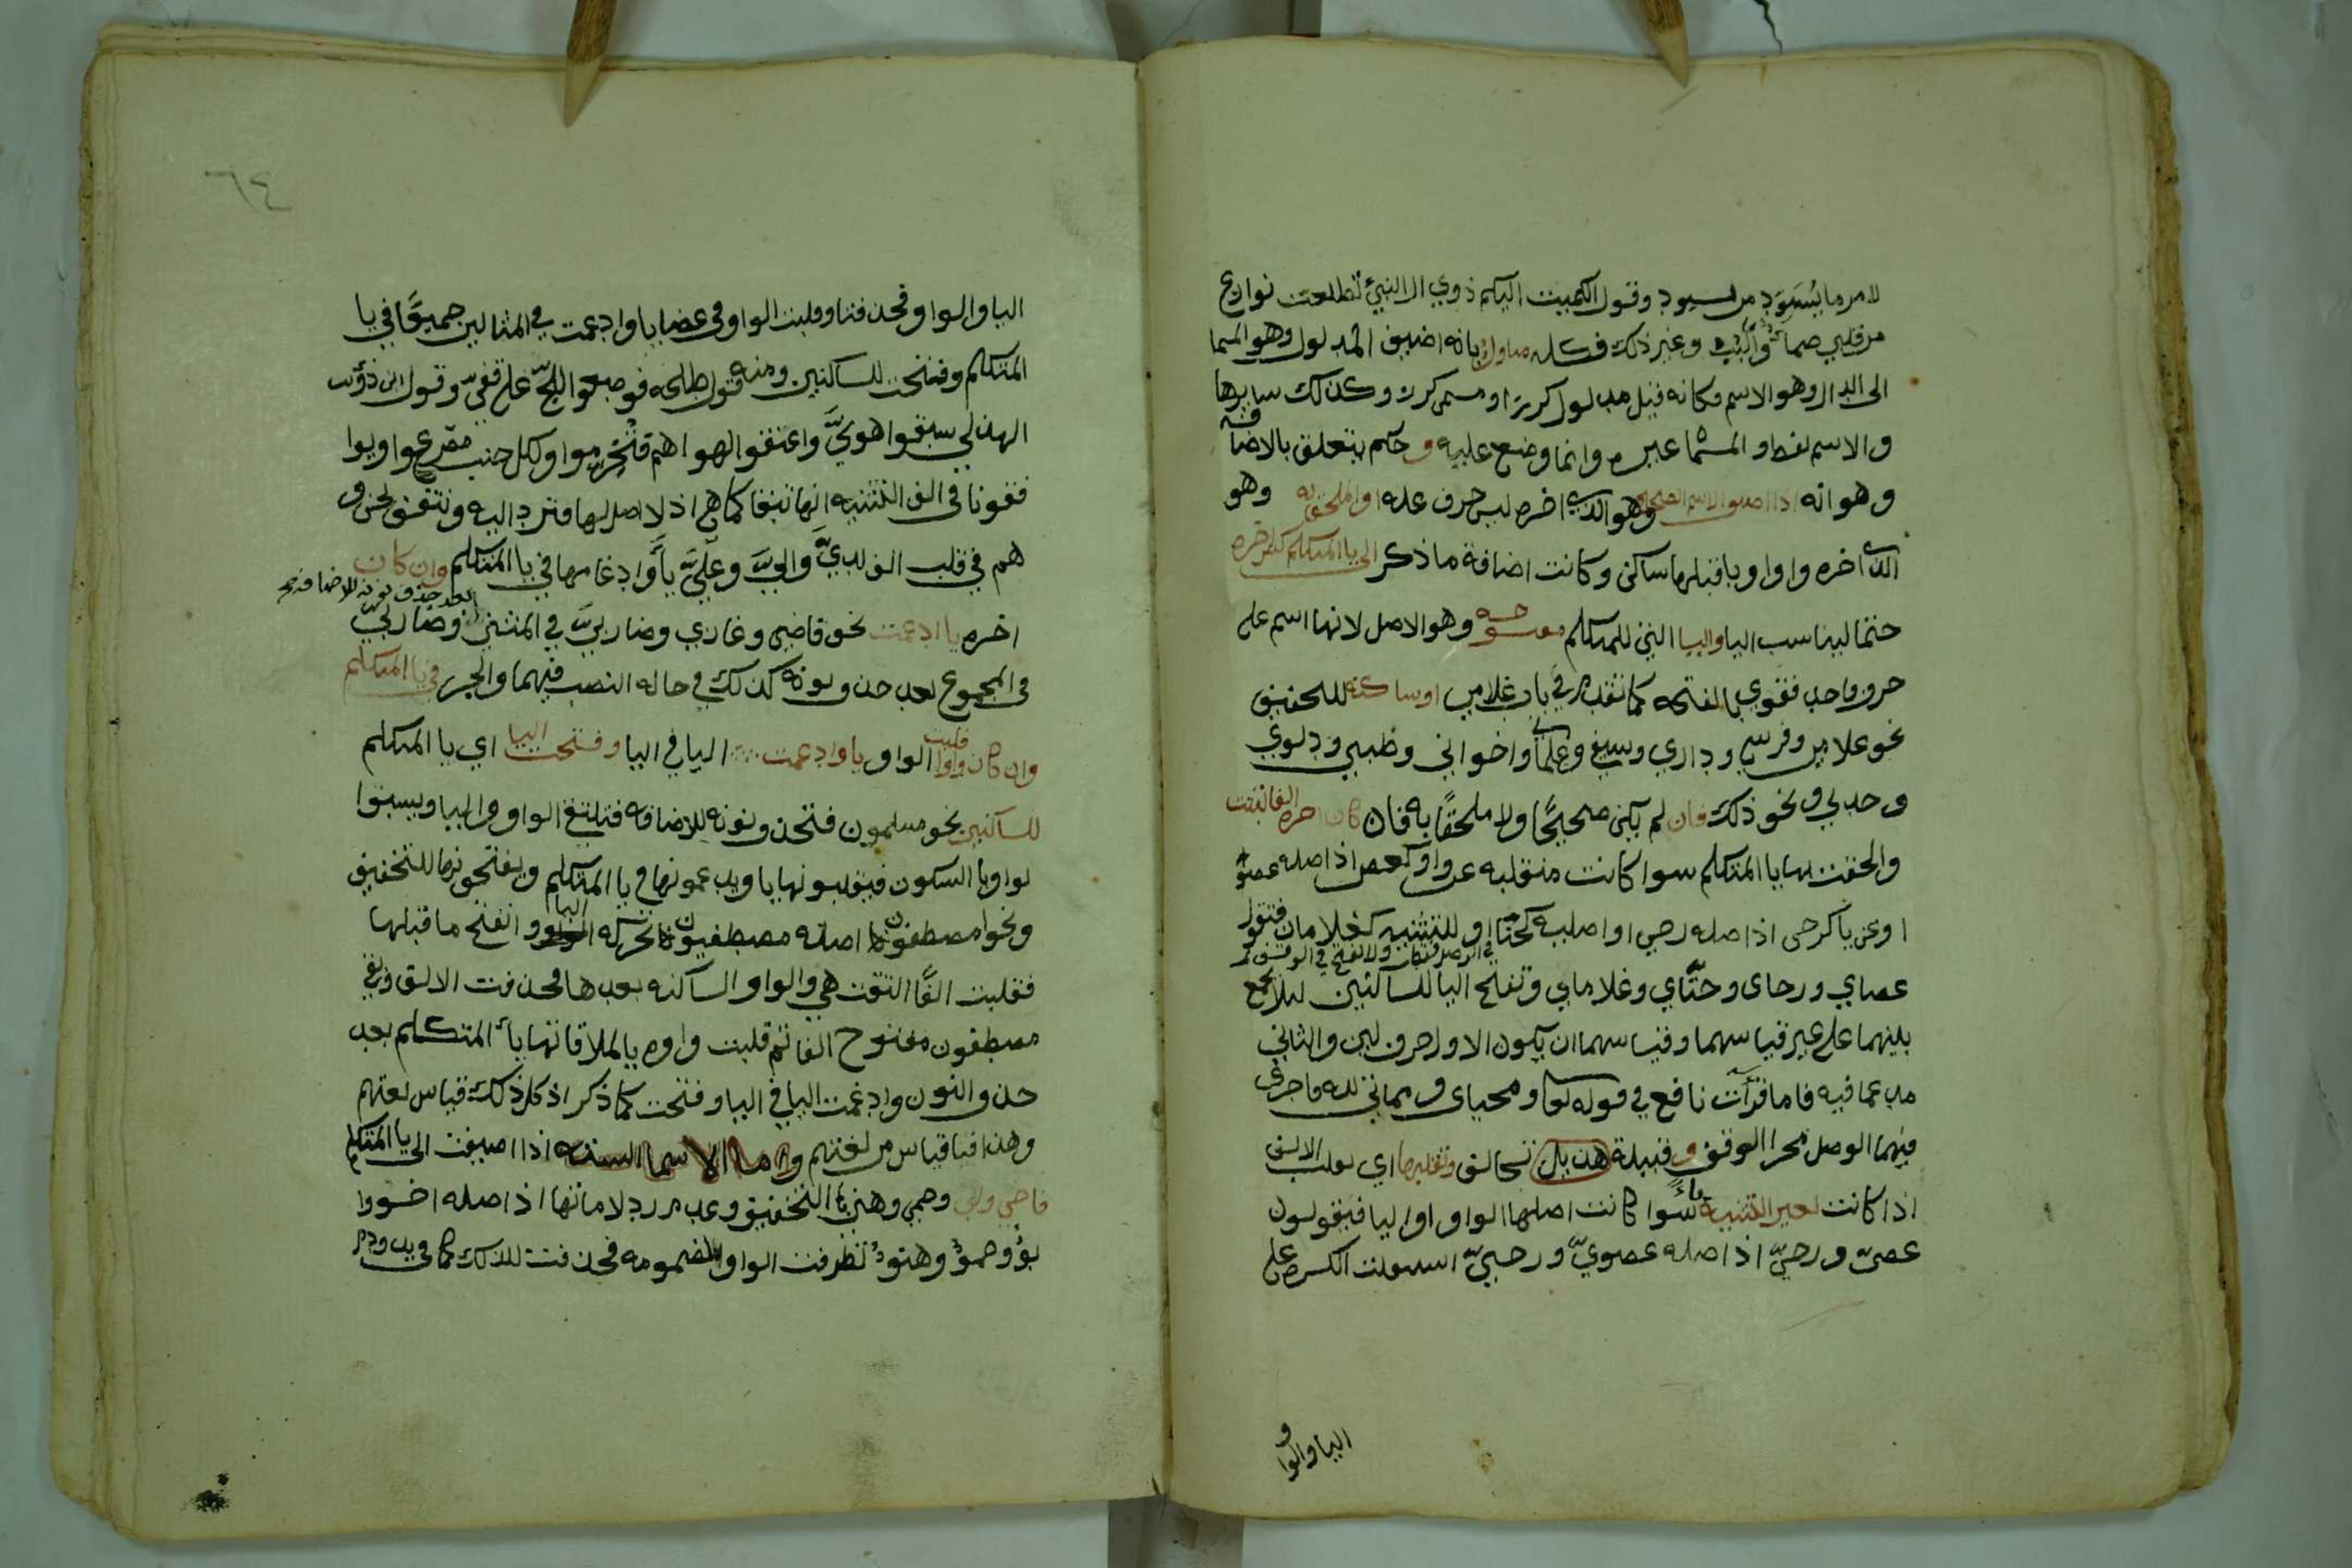 لامر ما يُسَوَّد من يسود وقول الكميت اليكم ذوي ال النبيّ تطلعت نوازع
من قلبي ظماء وألبب وغير ذلك فكله متاول بانه اضيف المدلول وهو المسما
الى الدال وهو الاسم فكانه قيل مدلول كرز او مسمى كرز وكذلك سايرها
والاسم لفظ والمسما عبر وانما وضع عليه وحكم يتعلق بالاضافة
وهو انه اذا اضيف الاسم الصحيح وهو الذي اخره ليس حرف عله او الملحق به وهو
الذي اخره واو او يا قبلها ساكن وكانت اضافة ما ذكر الى يا المتكلم كسر اخره
حتما ليناسب اليا واليا التي للمتكلم مفتوحه وهو الاصل لانها اسم على
حرف واحد فقوي بالفتحه كما تقدم في باب غلامي او ساكنه للتخفيف
نحو غلامي وفرسي وداري وسيفي وغلماني واخواني وظبيي ودلوي
وجديي ونحو ذلك فان لم يكن صحيحًا ولا ملحقًا به فان كان اخره الفا ثبتت
والحقت بها يا المتكلم سوا كانت منقلبه عن واو كعصا اذ اصله عصو
او عن يا كرحى اذ اصله رحي او اصلية كحتّا او للتثنيه كغلامان فتقول
عصاي ورحاى وحتّاي وغلاماي وتفتح اليا للساكنين ليلا يجمع
في الوصل فتحات ولا تفتح في الوقف
بينهما على غير قياسهما وقياسهما ان يكون الاول حرف لين والثاني
مدغما فيه فاما قرآت نافع في قوله تعا ومحياى ومماتي لله فاجرى
فيهما الوصل مجرا الوقف وقبيلة هذيل تخالف وتقلبها اي تقلب الالف
اذا كانت لغير التثنية ياءً سوا كانت اصلها الواو او اليا فيقولون
عصيّ ورحيّ اذ اصله عصويّ ورحييّ استثقلت الكسره على
اليا والوا و
٦٤
اليا والواو فحذفتا وقلبت الواو في عصا يا وادغمت في المثالين جميعًا في يا
المتكلم وفتحت للساكنين ومنه قول طلحه فوضعوا اللجّ على قفيّ وقول ابي ذؤيب
الهذلي سبقوا هويَّ واعنقوا لهواهم فتُخرموا ولكل جنب مصرع وا ويوا
فقونا في الف التثنيه انها تبقا كما هي اذ لا اصل لها فترد اليه ونتفق نحن و
هم في قلب الف لديَّ واليَّ وعليَّ يآءً وادغامها في يا المتكلم وان كان
اخره يا ادغمت نحو قاضي وغازي وضاربيَّ في المثنى وضاربي
بعد حذف نونه للاضافة صح
في المجموع بعد حذف نونه كذلك في حاله النصب فيهما والجر في يا المتكلم
وان كان واوا قلبت الواو يا وادغمت اليا في اليا وفتحت اليا اي يا المتكلم
للساكنين نحو مسلمون فتحذف نونه للاضافه فتلتقي الواو واليا ويسبقوا
لواو با السكون فيقلبونها يا ويدغمونها في يا المتكلم ويفتحونها للتخفيف
ونحو مصطفون اصله مصطفيون تحركه اليا وانفتح ما قبلها
فقلبت الفًا التقت هي والواو الساكنه بعدها فحذفت الالف وبقي
مصطفون مفتوح الفا ثم قلبت واوه يا لملاقاتها ياء المتكلم بعد
حذف النون وادغمت اليا في اليا وفتحت كما ذكر اذ كل ذلك قياس لغتهم
وهذا قياس من لغتهم واما الاسما السته اذا اضيفت الى يا المتكلم
فاخي وابي وحمي وهني با التخفيف وعدم رد لاماتها اذ اصله اخو وا
بوٌ وحموٌ وهنوٌ تطرفت الواو المضمومه فحذفت لذلك كما في يد ودم